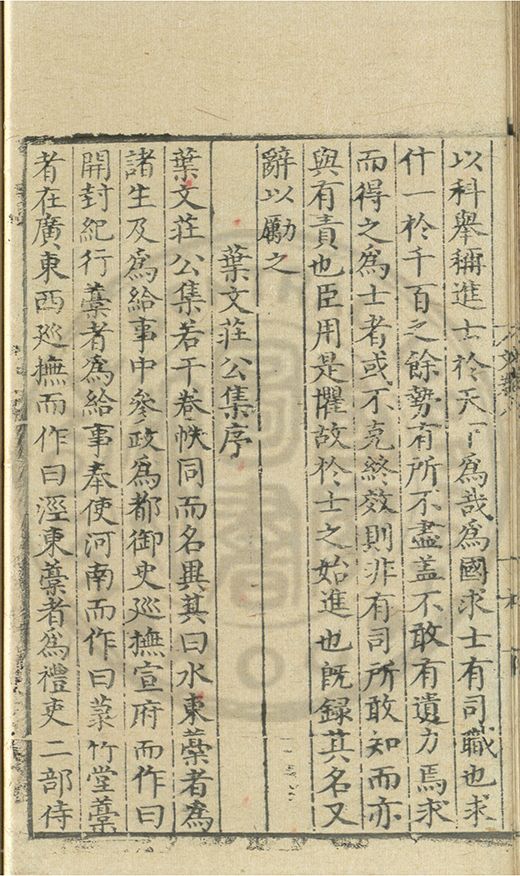 以科舉稱進士於天下爲哉爲國求士有司職也求
什一於千百之餘勢有所不盡盖不敢有遺力焉求
而得之爲士者或不克終效則非有司所敢知而亦
與有責也臣用是懼故於士之始進也既録其名又
辭以勵之
葉文莊公集序
葉文莊公集若干卷帙同而名異其曰水東藁者爲
諸生及爲給事中參政爲都御史廵撫宣府而作曰
開封紀行藁者爲給事奉使河南而作曰菉竹堂藁
者在廣東西廵撫而作曰涇東藁者爲禮吏二部侍